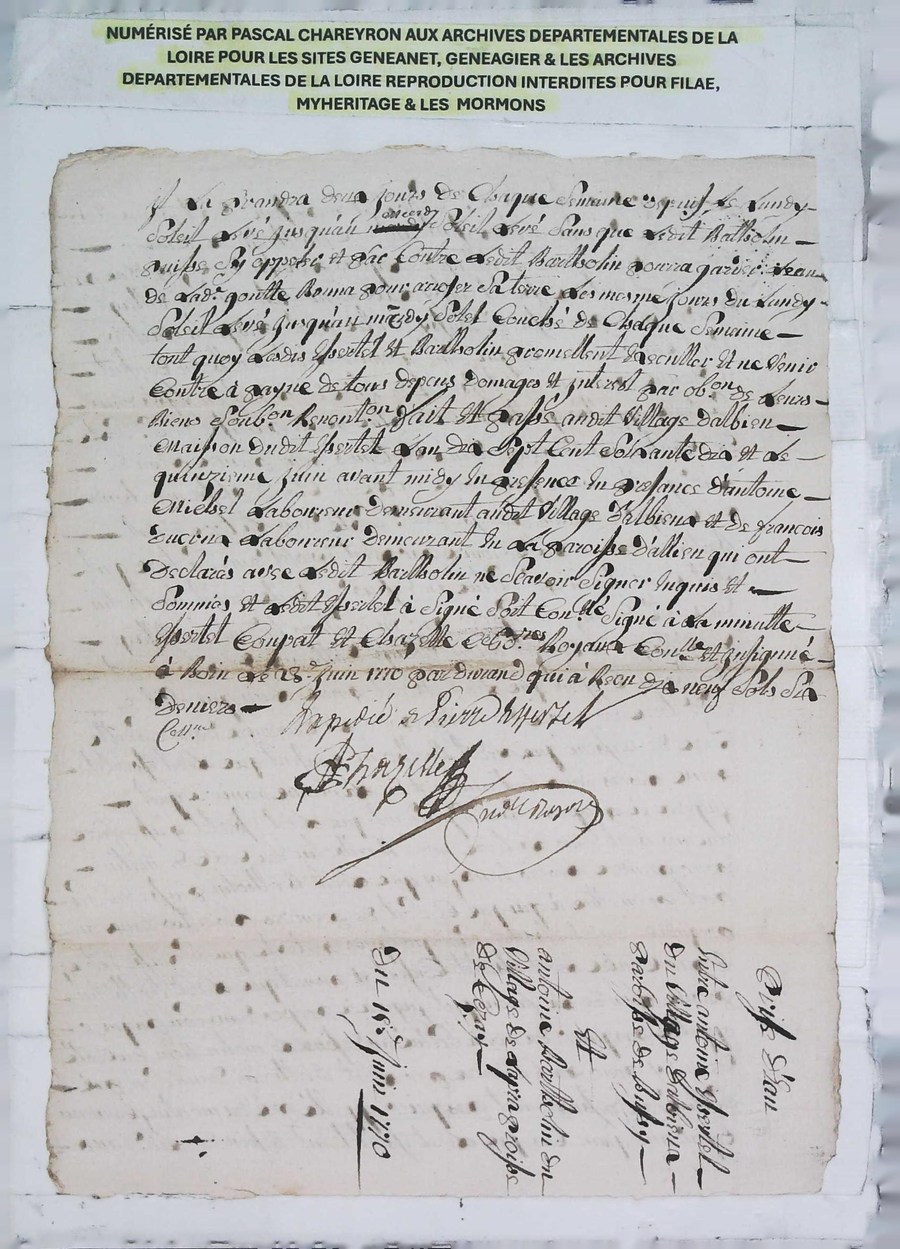 NUMÉRISÉ PAR PASCAL CHAREYRON AUX ARCHIVES DEPARTEMENTALES DE LA
LOIRE POUR LES SITES GENEANET, GENEAGIER & LES ARCHIVES
DEPARTEMENTALES DE LA LOIRE REPRODUCTION INTERDITES POUR FILAE,
MYHERITAGE & LES MORMONS
La prandra deux jours de Chaque Semaine depuis le Lundy
Soleil levé jusqu'au Soleil levé Sans que ledit Bartholin
puisse Sy opposer et par Contre ledit Bartholin pourra garder leau
de lad.e goutte Bonna pour arroser Sa terre les mesme jours du Lundy
Soleil levé jusqu'au mardy Soleil Couché de Chaque Semaine
tout quoy lesdis et Barthollin promettent Execulter et ne Venir
Contre à payne de tous depens domages et interest par ob.on de leurs
Biens Soub.on Renont.on fait et passé audit Village dalbien
maison dudit lan dix Sept Cent Soixante dix et le
quinzieme juin avant midy En presence En presance d'antoine
michel laboureur demeurant audit Village d'albiena et de francois
laboureur demeurant En la paroisse d'allien qui ont
Declarés avec ledit Barthollin ne Scavoir Signer Enquis et
Sommés et ledit à Signé Soit Con.lle Signé à la minutte
Coupat et Chazelle Royaux Con.llé et insinué
à Boën le 18.e juin 1770 par durand qui à Recu dix neuf Sols Six
deniers
Expedié a Pierre
Chazelle
No.re Royal
Prise d'eau
Entre antoine
du Village d'albiena
paroisse de bussy
Et
antoine Barthelin du
Village de paroisse
de Cezay
du 15.e juin 1770